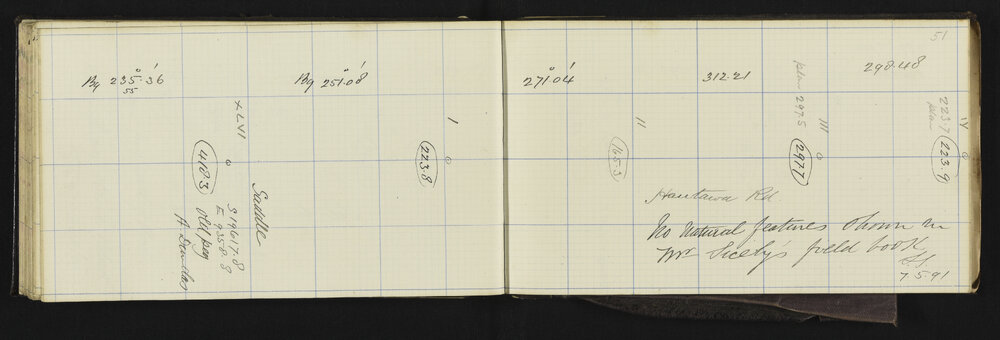 51
Bg 235°.36'
55
Bg 251°.08'
271°.04'
312.21
290.48
XLVI
4183
Saddle
S 19617.8
E 9358.8
old peg
A. Dundas
I
223.8
II
165.3
plan 297.5
III
297.7
223.7
plan
IV
223.9
Hautawa Rd
No natural features shown in
Mr Sicely's field book
7 5 91